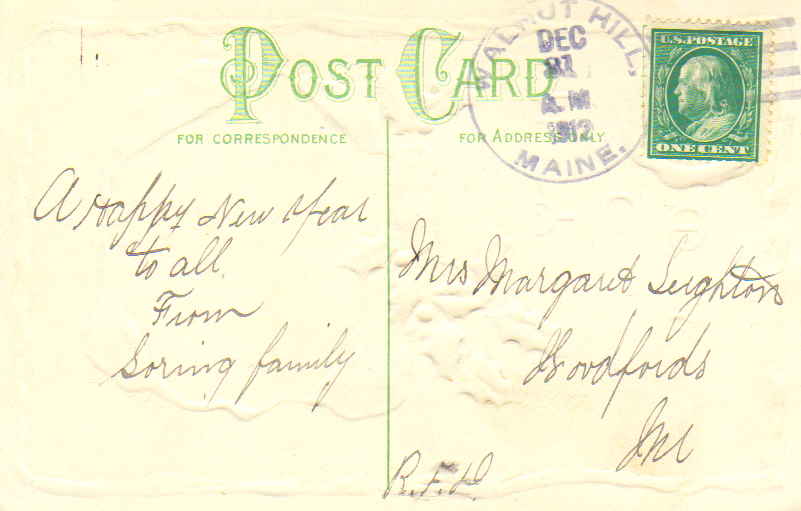 POST CARD
FOR CORRESPONDENCE
FOR ADDRESS ONLY
WALNUT HILL,
DEC
31
A.M.
1912
MAINE.
U.S. POSTAGE
ONE CENT
A Happy New Year
to all.
From
Loring family
Mrs Margaret Leighton
Woodfords
Me
R.F.D.